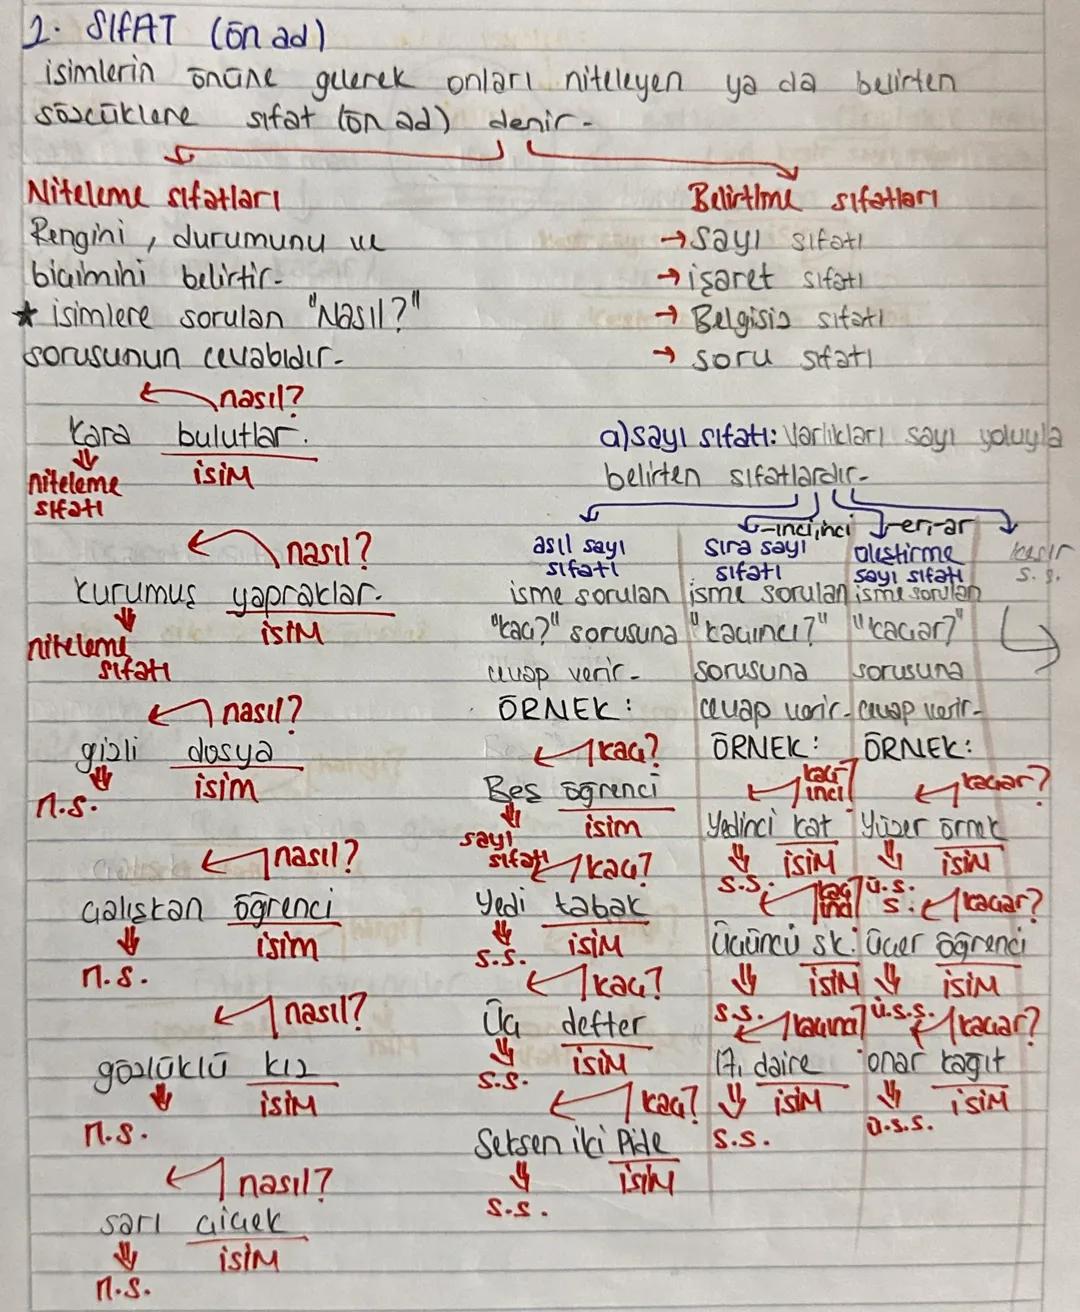 2. SIFAT (ön ad)
isimlerin önüne gelerek onları niteleyen ya da belirten
sözcüklere sıfat (ön ad) denir.
Niteleme sıfatları
Rengini, durumunu ve
biçimini belirtir.
★ isimlere sorulan "Nasıl?"
sorusunun cevabıdır.
nasıl?
kara bulutlar.
niteleme sıfatı
isim
nasıl?
kurumuş yapraklar.
niteleme sıfatı
isim
nasıl?
gizli dosya
n.s.
isim
nasıl?
çalışkan öğrenci
n.s.
isim
nasıl?
gözlüklü kız
n.s.
isim
nasıl?
sarı çiçek
n.s.
isim
Belirtme sıfatları
→ sayı sıfatı
→ işaret sıfatı
→ Belgisiz sıfatı
→ soru sıfatı
a) sayı sıfatı: Varlıkları sayı yoluyla
belirten sıfatlardır.
asıl sayı
sıfatı
isme sorulan
"kaç?" sorusuna
cevap verir.
ÖRNEK:
kaç?
Beş öğrenci
sayı sıfatı
isim
kaç?
Yedi tabak
s.s.
isim
kaç?
Üç defter
s.s.
isim
kaç?
Seksen iki Pide
s.s.
isim
-ıncı, inci
sıra sayı
sıfatı
isme sorulan
"kaçıncı?"
sorusuna
cevap verir.
ÖRNEK:
kaçıncı
Yedinci kat
s.s.
isim
kaçıncı
Üçüncü sk.
s.s.
isim
kaçıncı
17. daire
s.s.
isim
-er, -ar
üleştirme
sayı sıfatı
isme sorulan
"kaçar?"
sorusuna
cevap verir.
ÖRNEK:
kaçar?
Yüzer örnek
ü.s.s.
isim
kaçar?
üçer öğrenci
ü.s.s.
isim
kaçar?
onar kağıt
ü.s.s.
isim
kesir
s.s.